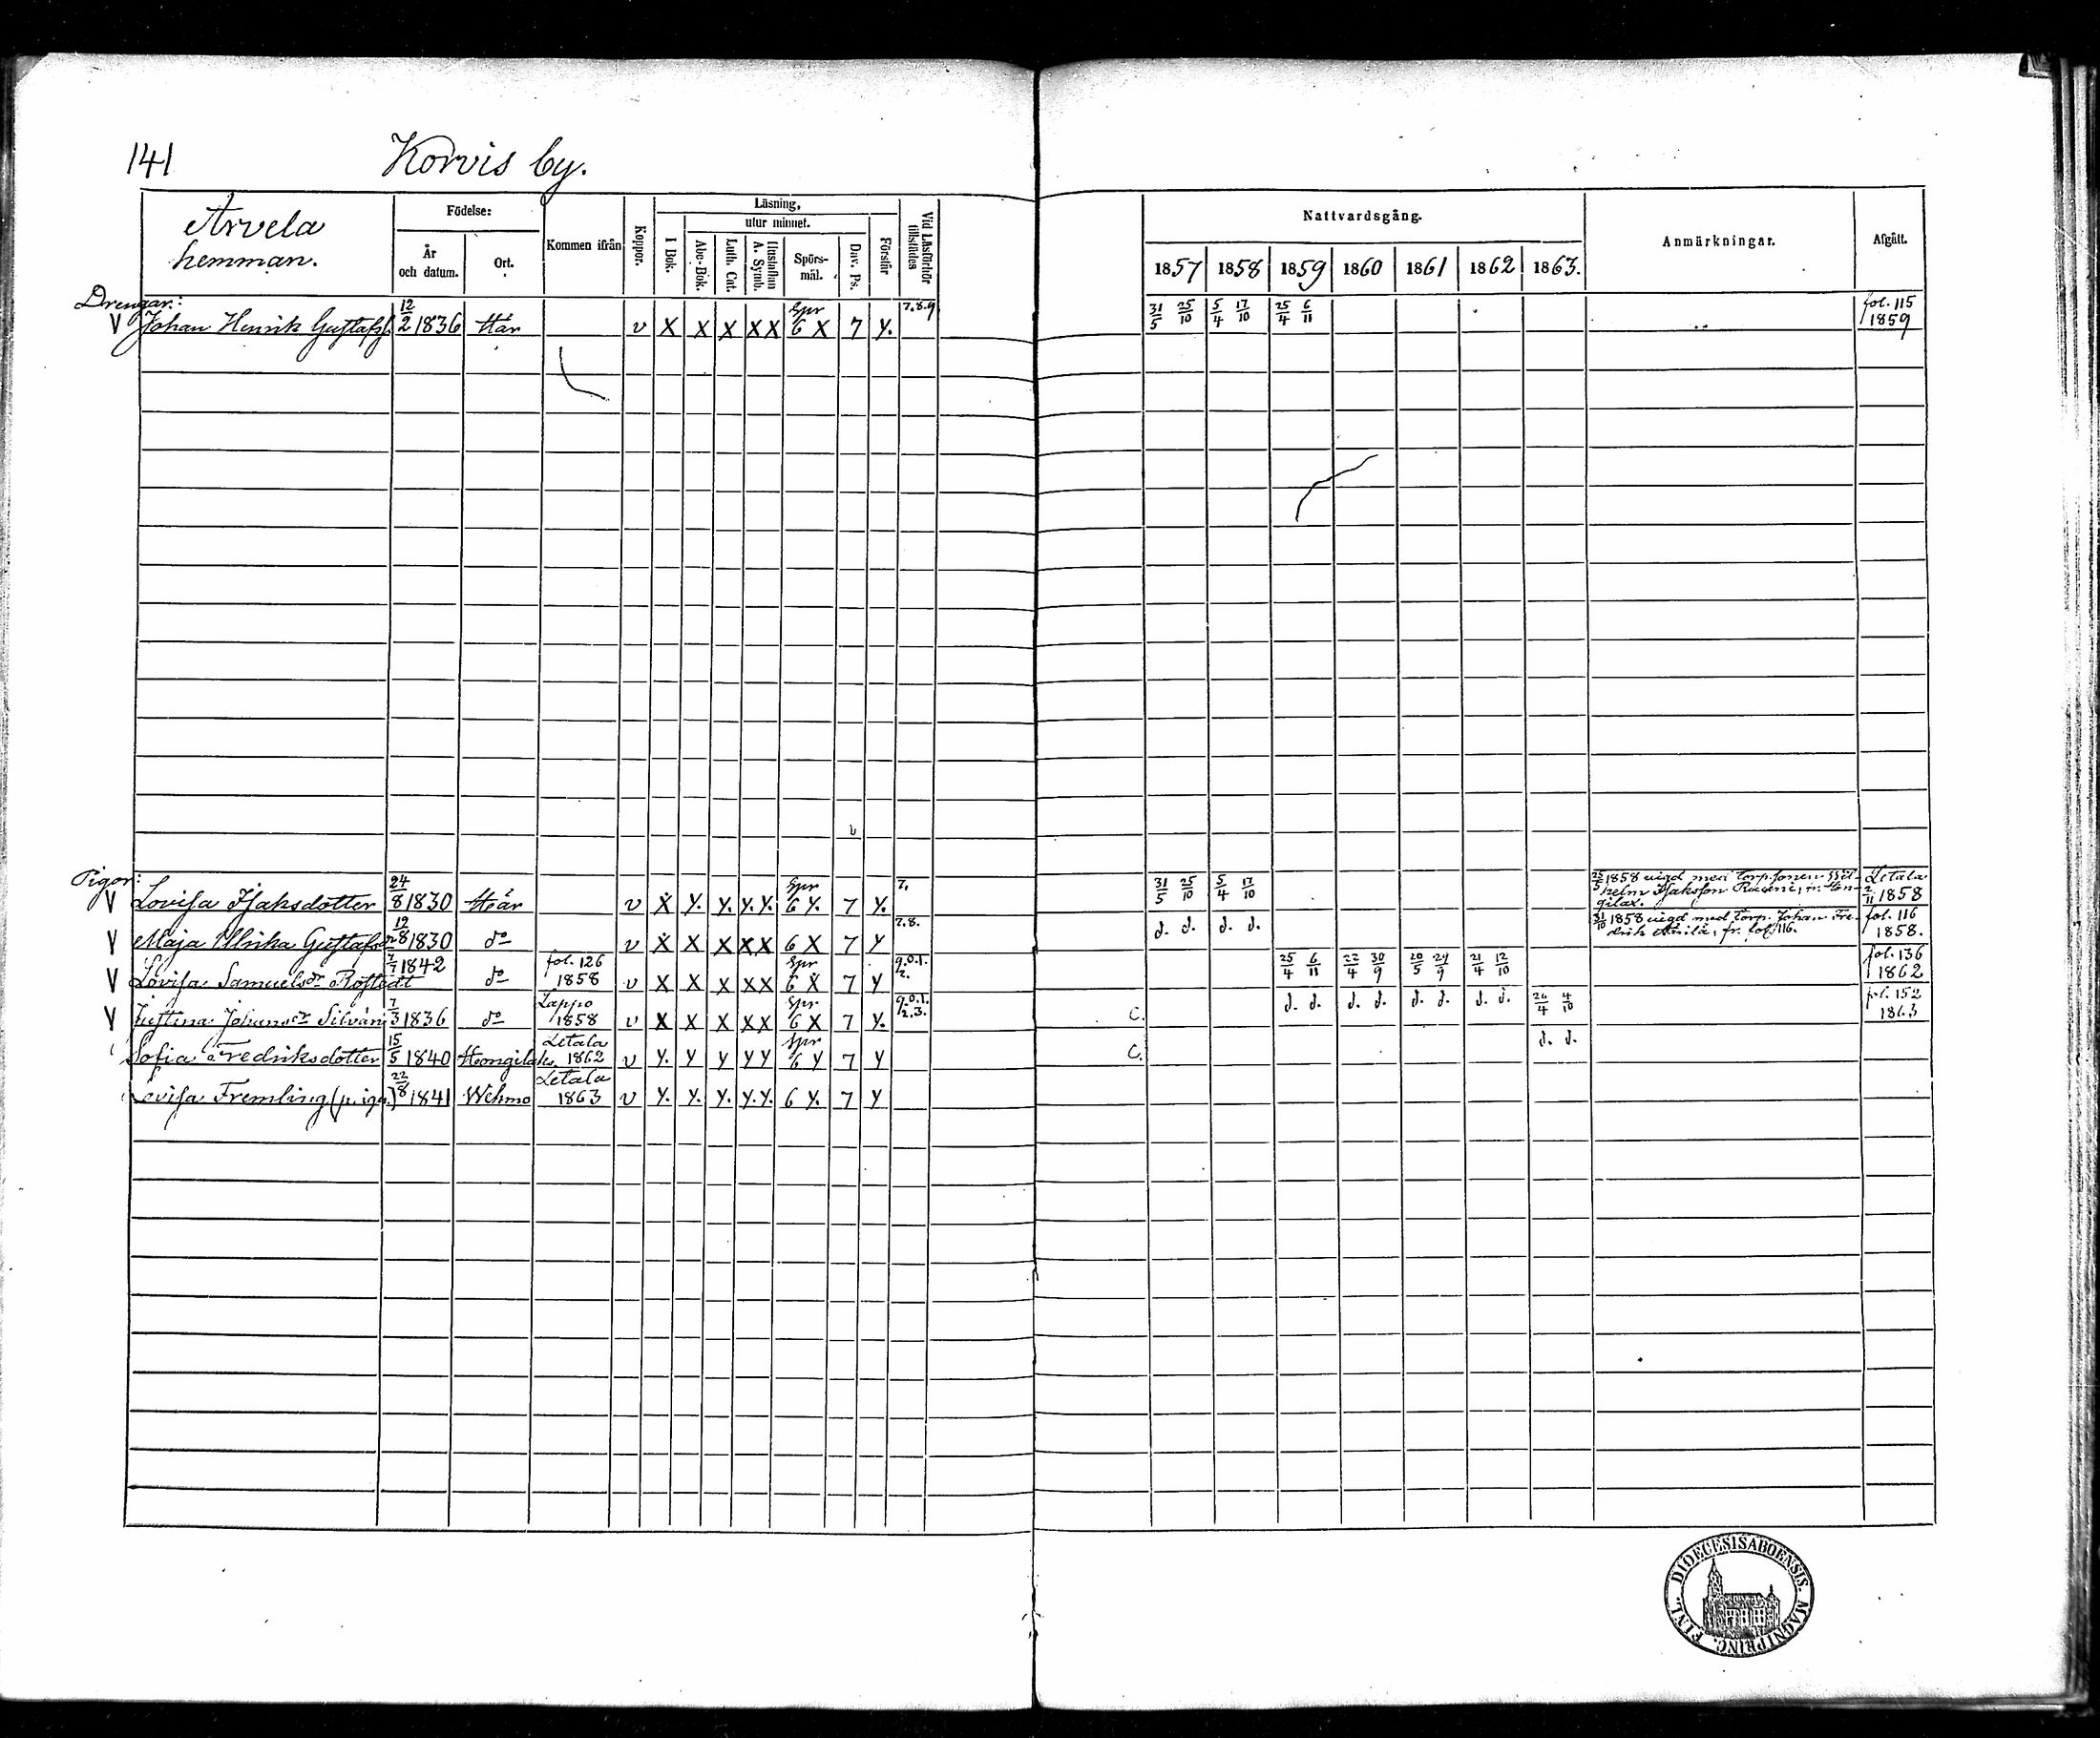 141 Korvis by.
Arvela hemman.
Födelse:
År och datum.
Ort.
Kommen ifrån
Koppor.
Läsning,
I Bok.
utur minnet.
Abc-Bok.
Luth. Cat.
Hustaflan A. Symb.
Spörs-mål.
Dav. Ps.
Förstår
Vid Läsförhör tillstädes
Nattvardsgång.
1857 1858 1859 1860 1861 1862 1863.
Anmärkningar.
Afgått.
Drengar:
V Johan Henrik Gustafss. 12/2 1836 Här v X X X X X Spr 6 X 7 Y. 7.8.9 31/5 25/10 5/4 17/10 25/4 6/11 fol. 115 1859
Pigor:
V Lovisa Isaksdotter 24/8 1830 Här v X Y. Y. Y. Y. Spr 6 Y. 7 Y. 7. 31/5 25/10 5/4 17/10 1858 vigd med Torp.sonen Wilhelm Isaksson fr. Hongilax. Letala 2/11 1858
V Maja Ullrika Gustafsdr 12/8 1830 do v X X X X X 6 X 7 Y 7.8. d. d. d. d. 31/10 1858 vigd med Torp. Johan Fredrik fr. fol. 116. fol. 116 1858.
V Lovisa Samuelsdr Rostedt 7/7 1842 do fol. 126 1858 v X X X X X Spr 6 X 7 Y 9.0.1. 2. 25/4 6/11 22/4 30/9 20/5 29/9 21/4 12/10 fol. 136 1862
V Justina Johansdr Silván 7/3 1836 do Lappo 1858 v X X X X X Spr 6 X 7 Y. 9.0.1. 2.3. C. d. d. d. d. d. d. d. d. 26/4 4/10 fol. 152 1863
Sofia Fredriksdotter 15/5 1840 Hongilaks Letala 1862 v Y. Y Y Y Y Spr 6 Y 7 Y C. d. d.
Lovisa Fremling (piga.) 22/8 1841 Wehmo Letala 1863 v Y. Y. Y. Y. Y. 6 Y. 7 Y
DIOECESIS ABOENSIS. MAGNI PRINC. FINL.